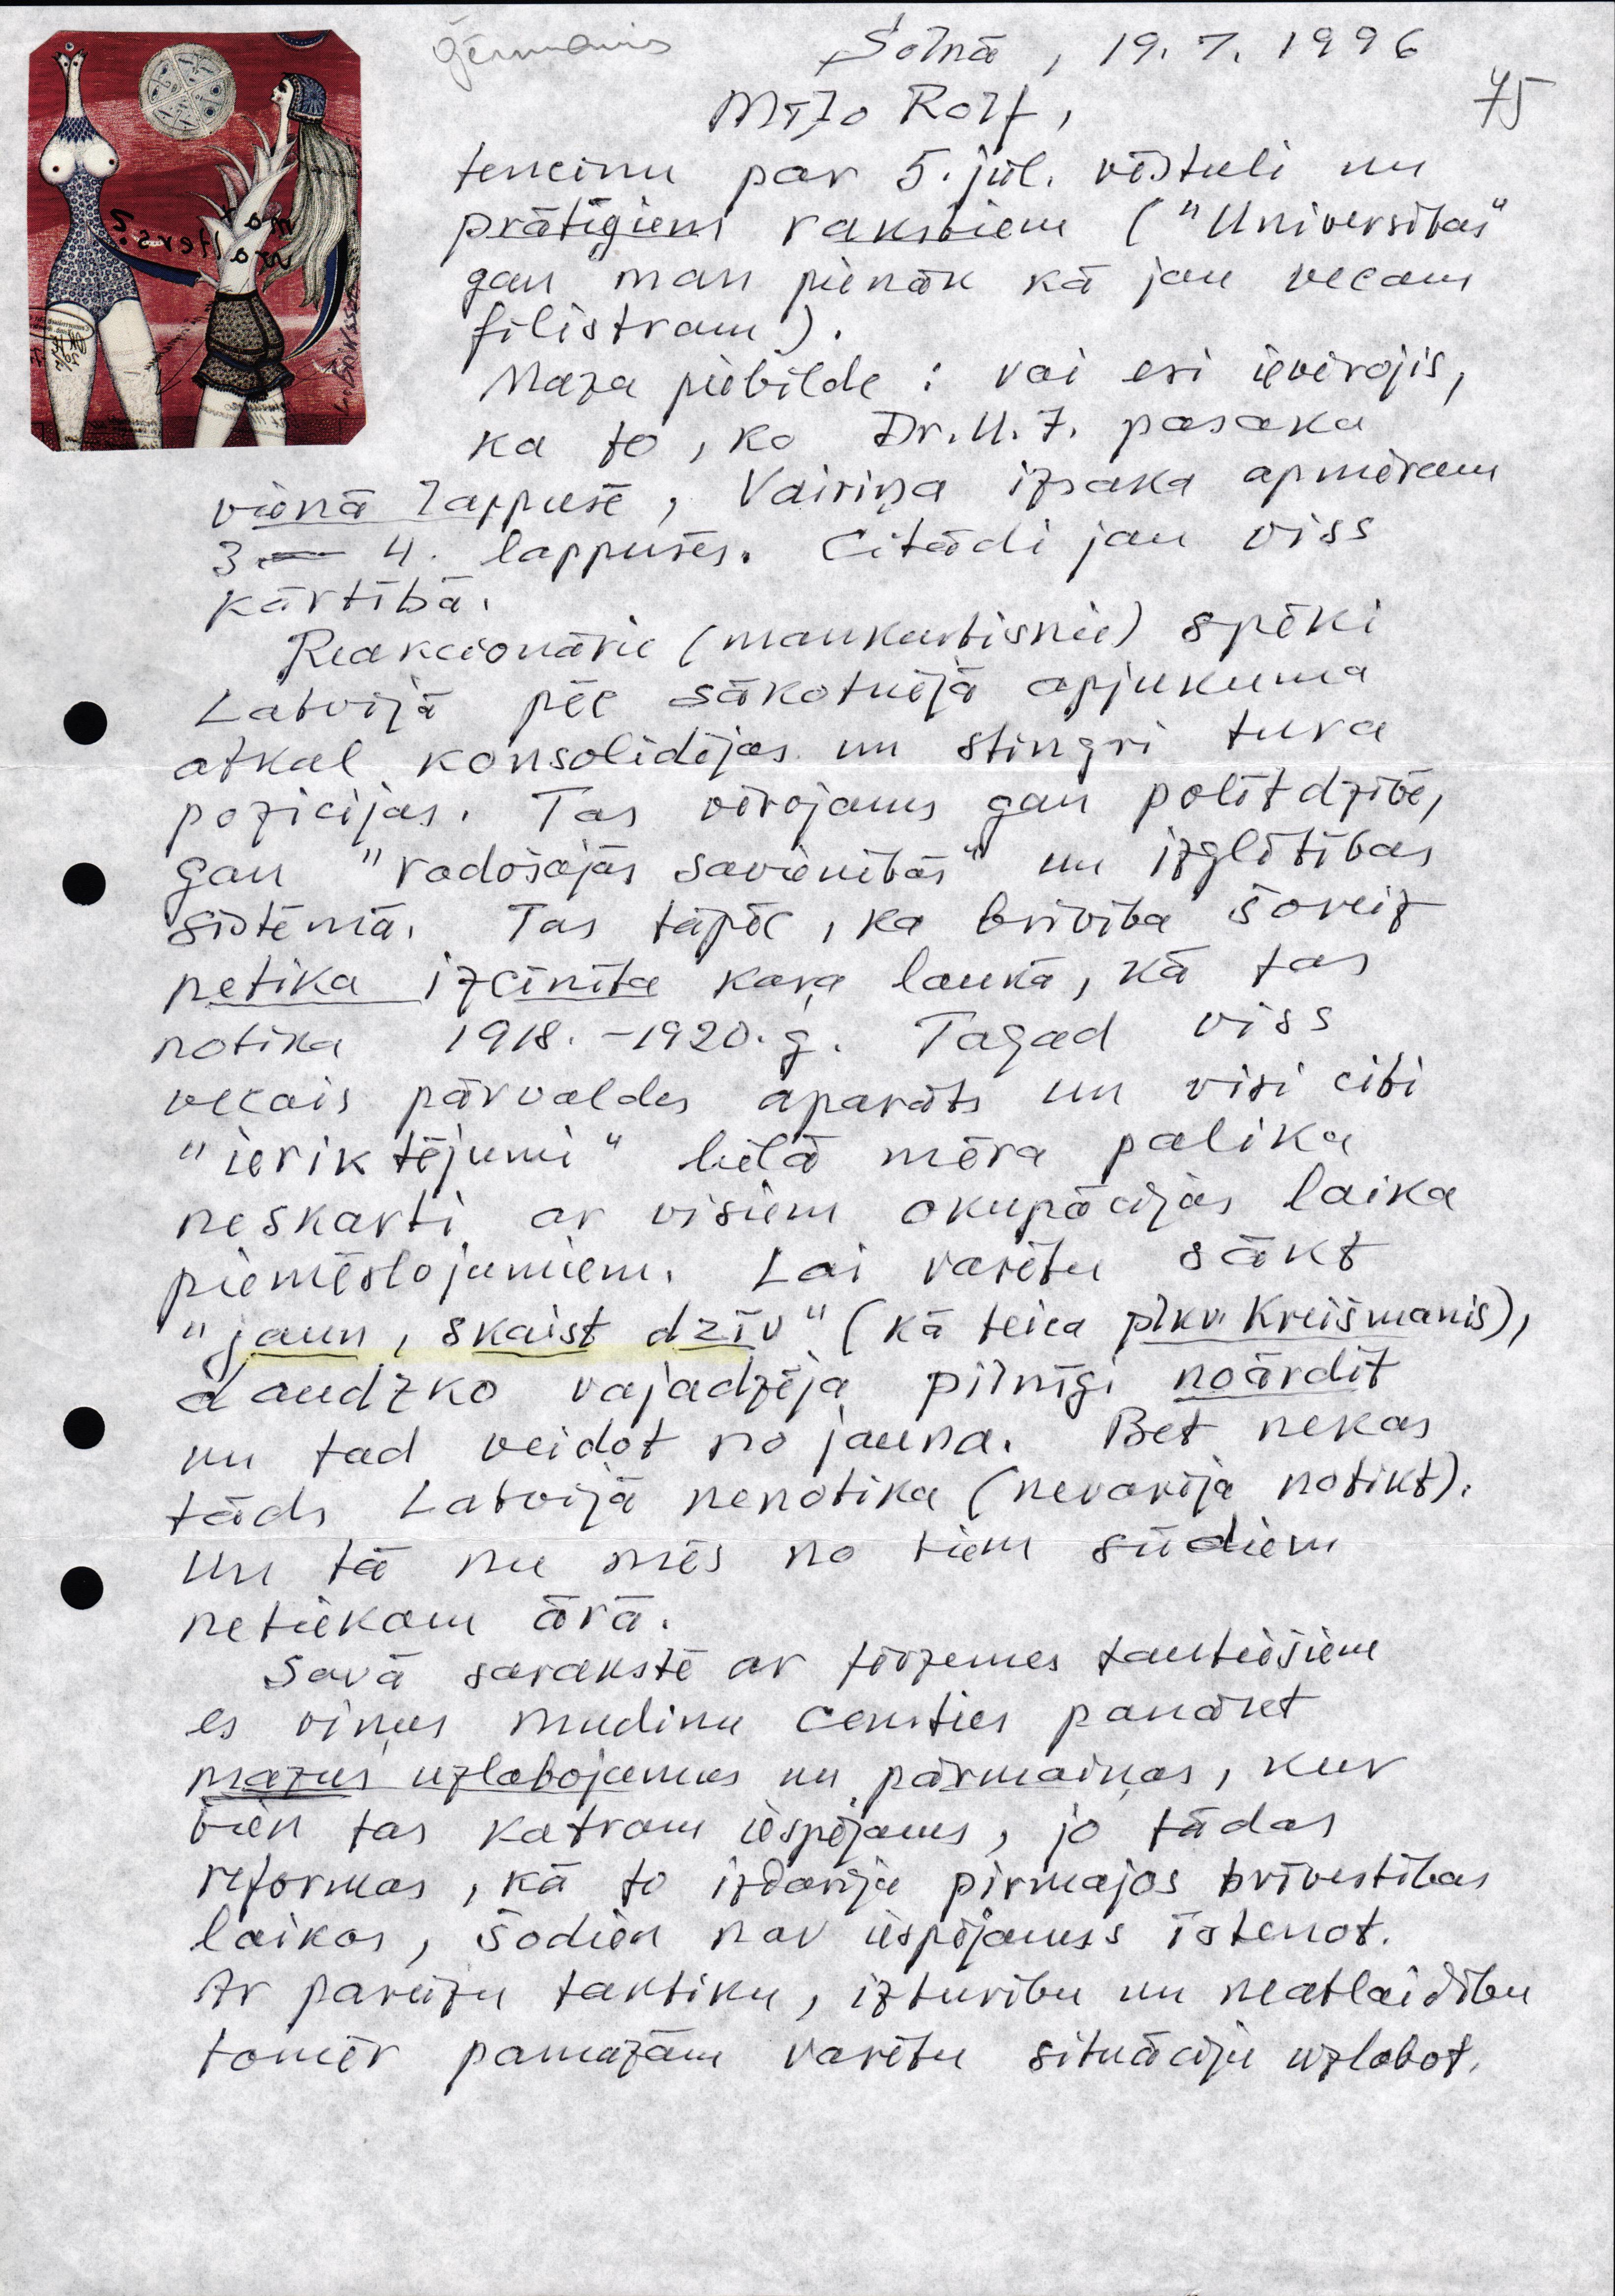 ģērmanis
Solnā, 19.7.1996
75
Mīļo Rolf,
tencinu par 5. jūl. vēstuli un
prātīgiem rakstiem ("Universitas"
gan man pienāk kā jau vecam
filistram).
Maza piebilde: vai esi ievērojis,
ka to, ko Dr. U. Ģ. pasaka
vienā lappusē, Vairiņa izsaka apmēram
3 — 4. lappusēs. Citādi jau viss
kārtībā.
Reakcionārie (mankurtiskie) spēki
Latvijā pēc sākotnējā apjukuma
atkal konsolidējas un stingri tura
pozicijas. Tas vērojams gan polītdzīvē,
gan "radošajās savienībās" un izglītības
sistēmā. Tas tāpēc, ka brīvība šoreiz
netika izcīnīta kaŗa laukā, kā tas
notika 1918.-1920.g. Tagad viss
vecais pārvaldes aparāts un visi citi
"ieriktējumi" lielā mērā palika
neskarti ar visiem okupācijas laika
piemēslojumiem. Lai varētu sākt
"jaun, skaist dzīv" (kā teica plkv. Kreišmanis),
daudzko vajadzēja pilnīgi noārdīt
un tad veidot no jauna. Bet nekas
tāds Latvijā nenotika (nevarēja notikt).
Un tā nu mēs no tiem sūdiem
netiekam ārā.
Savā sarakstē ar tēvzemes tautiešiem
es viņus mudinu censties panākt
mazus uzlabojumus un pārmaiņas, kur
vien tas katram iespējams, jo tādas
reformas, kā to izdarīja pirmajos brīvvalstības
laikos, šodien nav iespējams īstenot.
Ar pareizu taktiku, izturību un neatlaidību
tomēr pamazām varētu situāciju uzlabot.